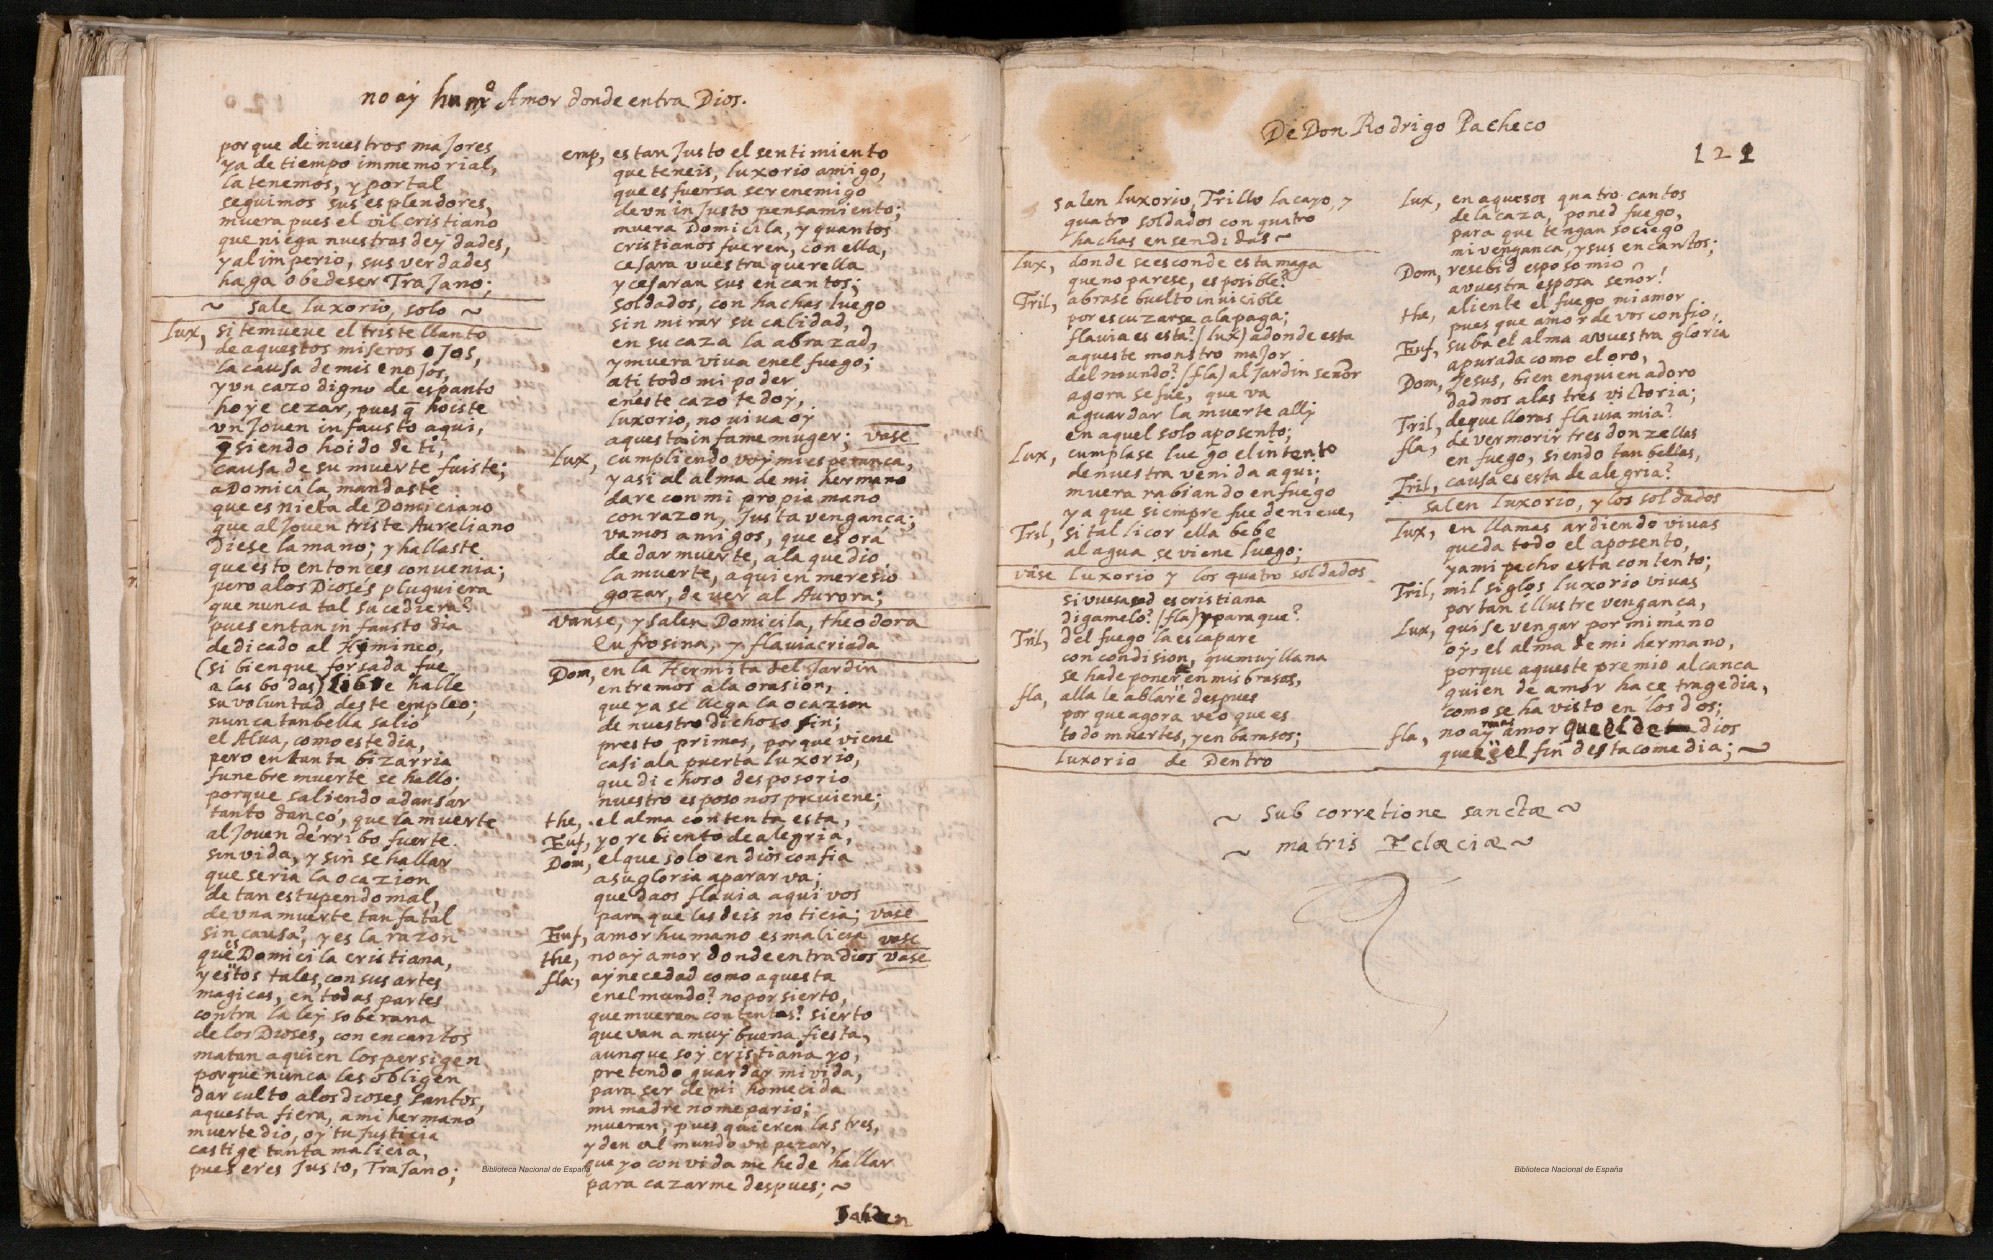 no ay humº Amor donde entra Dios.
porque de nuestros maJores
ya de tiempo immemorial,
la tenemos, y por tal
seguimos sus esplendores,
muera pues el vil cristiano
que niega nuestras deydades,
y al imperio, sus verdades
haga obedeser TraJano;
~ sale luxorio, solo ~
lux, si te mueve el triste llanto
de aquestos miseros oJos,
la causa de mis enoJos,
y un cazo digno de espanto
hoy e cezar, pues q̄ hoiste
un Joven infausto aqui,
q̄ siendo hoido de ti,
causa de su muerte fuiste;
a Domicila, mandaste
que es nieta de Domiciano
que al Joven triste Aureliano
Diese la mano; y hallaste
que esto entonces convenia;
pero a los Dioses pluguiera
que nunca tal sucediera?
pues en tan infausto dia
dedicado al Himineo,
(si bien que forsada fue
a las bodas) libre halle
su voluntad deste empleo;
nunca tan bella salio
el Alva, como este dia,
pero en tanta bizarria
funebre muerte se hallo;
porque saliendo a dansar
tanto danco, que la muerte
al Joven derribo fuerte.
sin vida, y sin se hallar
que seria la ocazion
de tan estupendo mal,
de una muerte tan fatal
sin causa? y es la razon
que es Domicila cristiana,
y estos tales, con sus artes
magicas, en todas partes
contra la ley soberana
de los Dioses, con encantos
matan a quien los persigen
porque nunca les obligen
dar culto a los dioses santos,
aquesta fiera, a mi hermano
muerte dio, oy tu Justicia
castige tanta malicia,
pues eres Justo, TraJano;
emp, es tan Justo el sentimiento
que teneis, luxorio amigo,
que es fuersa ser enemigo
de un inJusto pensamiento;
muera Domicila, y quantos
cristianos fueren, con ella,
cesara vuestra querella
y cesaran sus encantos;
soldados, con hachas luego
sin mirar su calidad,
en su caza la abrazad,
y muera viva en el fuego;
a ti todo mi poder
en este cazo te doy,
luxorio, no viva oy
aquesta infame muger; vase
Lux, cumpliendo voy mi esperanca,
y asi al alma de mi hermano
dare con mi propia mano
con razon, Justa venganca;
vamos amigos, que es ora
de dar muerte, a la que dio
la muerte, a quien meresio
gozar, de ver al Aurora;
vanse, y salen Domicila, theodora
Eufrosina, y flavia criada
Dom, en la Hermita del Jardin
entremos a la orasion,
que ya se llega la ocazion
de nuestro dichoso fin;
presto primas, porque viene
casi a la puerta luxorio,
que dichoso desposorio
nuestro esposo nos previene;
the, el alma contenta esta,
Euf, yo rebiento de alegria,
Dom, el que solo en dios confia
a su gloria a parar va;
quedaos flavia aqui vos
para que les deis noticia; vase
Euf, amor humano es malicia vase
the, no ay amor donde entra dios vase
fla, ay necedad como aquesta
en el mundo? no por sierto,
que mueren contentas? sierto
que van a muy buena fiesta,
aunque soy cristiana yo,
pretendo guardar mi vida,
para ser de mi homecida
mi madre no me pario;
mueran, pues quieren las tres,
y den al mundo un pezar,
que yo con vida me he de hallar
para cazarme despues; ~
Salen
De Don Rodrigo Pacheco
121
salen luxorio, Trillo lacayo, y
quatro soldados con quatro
hachas ensendidas ~
lux, donde se esconde esta maga
que no parese, es posible?
Tril, abrase buelto invicible
por escuzarse a la paga;
flavia es esta? (lux) adonde esta
aqueste monstro maJor
del mundo? (fla) al Jardin señor
agora se fue, que va
a guardar la muerte alli
en aquel solo aposento;
Lux, cumplase luego el intento
de nuestra venida aqui;
muera rabiando en fuego
ya que siempre fue de nieve,
Tril, si tal licor ella bebe
al agua se viene luego;
vase luxorio y los quatro soldados
si vuesased es cristiana
digamelo? (fla) y para que?
Tril, del fuego la escapare
con condision, que muy llana
se ha de poner en mis brasas,
fla, alla le ablare despues
por que agora veo que es
todo muertes, y enbarasos;
luxorio de Dentro
Lux, en aquesos quatro cantos
de la caza, poned fuego,
para que tengan sociego
mi venganca, y sus encantos;
Dom, resebid esposo mio
a vuestra esposa señor!
the, aliente el fuego mi amor
pues que amor de vos confio,
Euf, suba el alma a vuestra gloria
apurada como el oro,
Dom, Jesus, bien en quien adoro
dadnos a las tres victoria;
Tril, de que lloras flavia mia?
fla, de ver morir tres donzellas
en fuego, siendo tan bellas,
Tril, causa es esta de alegria?
salen luxorio, y los soldados
lux, en llamas ardiendo vivas
queda todo el aposento,
y a mi pecho esta contento;
Tril, mil siglos luxorio vivas
por tan illustre venganca,
Lux, quise vengar por mi mano
oy, el alma de mi hermano,
porque aqueste premio alcanca
quien de amor hace tragedia,
como se ha visto en los dos;
fla, no ay mas amor que el de dios
que es el fin desta comedia; ~
~ sub corretione sanctæ ~
~ matris Eclæciæ ~
Biblioteca Nacional de España
Biblioteca Nacional de España